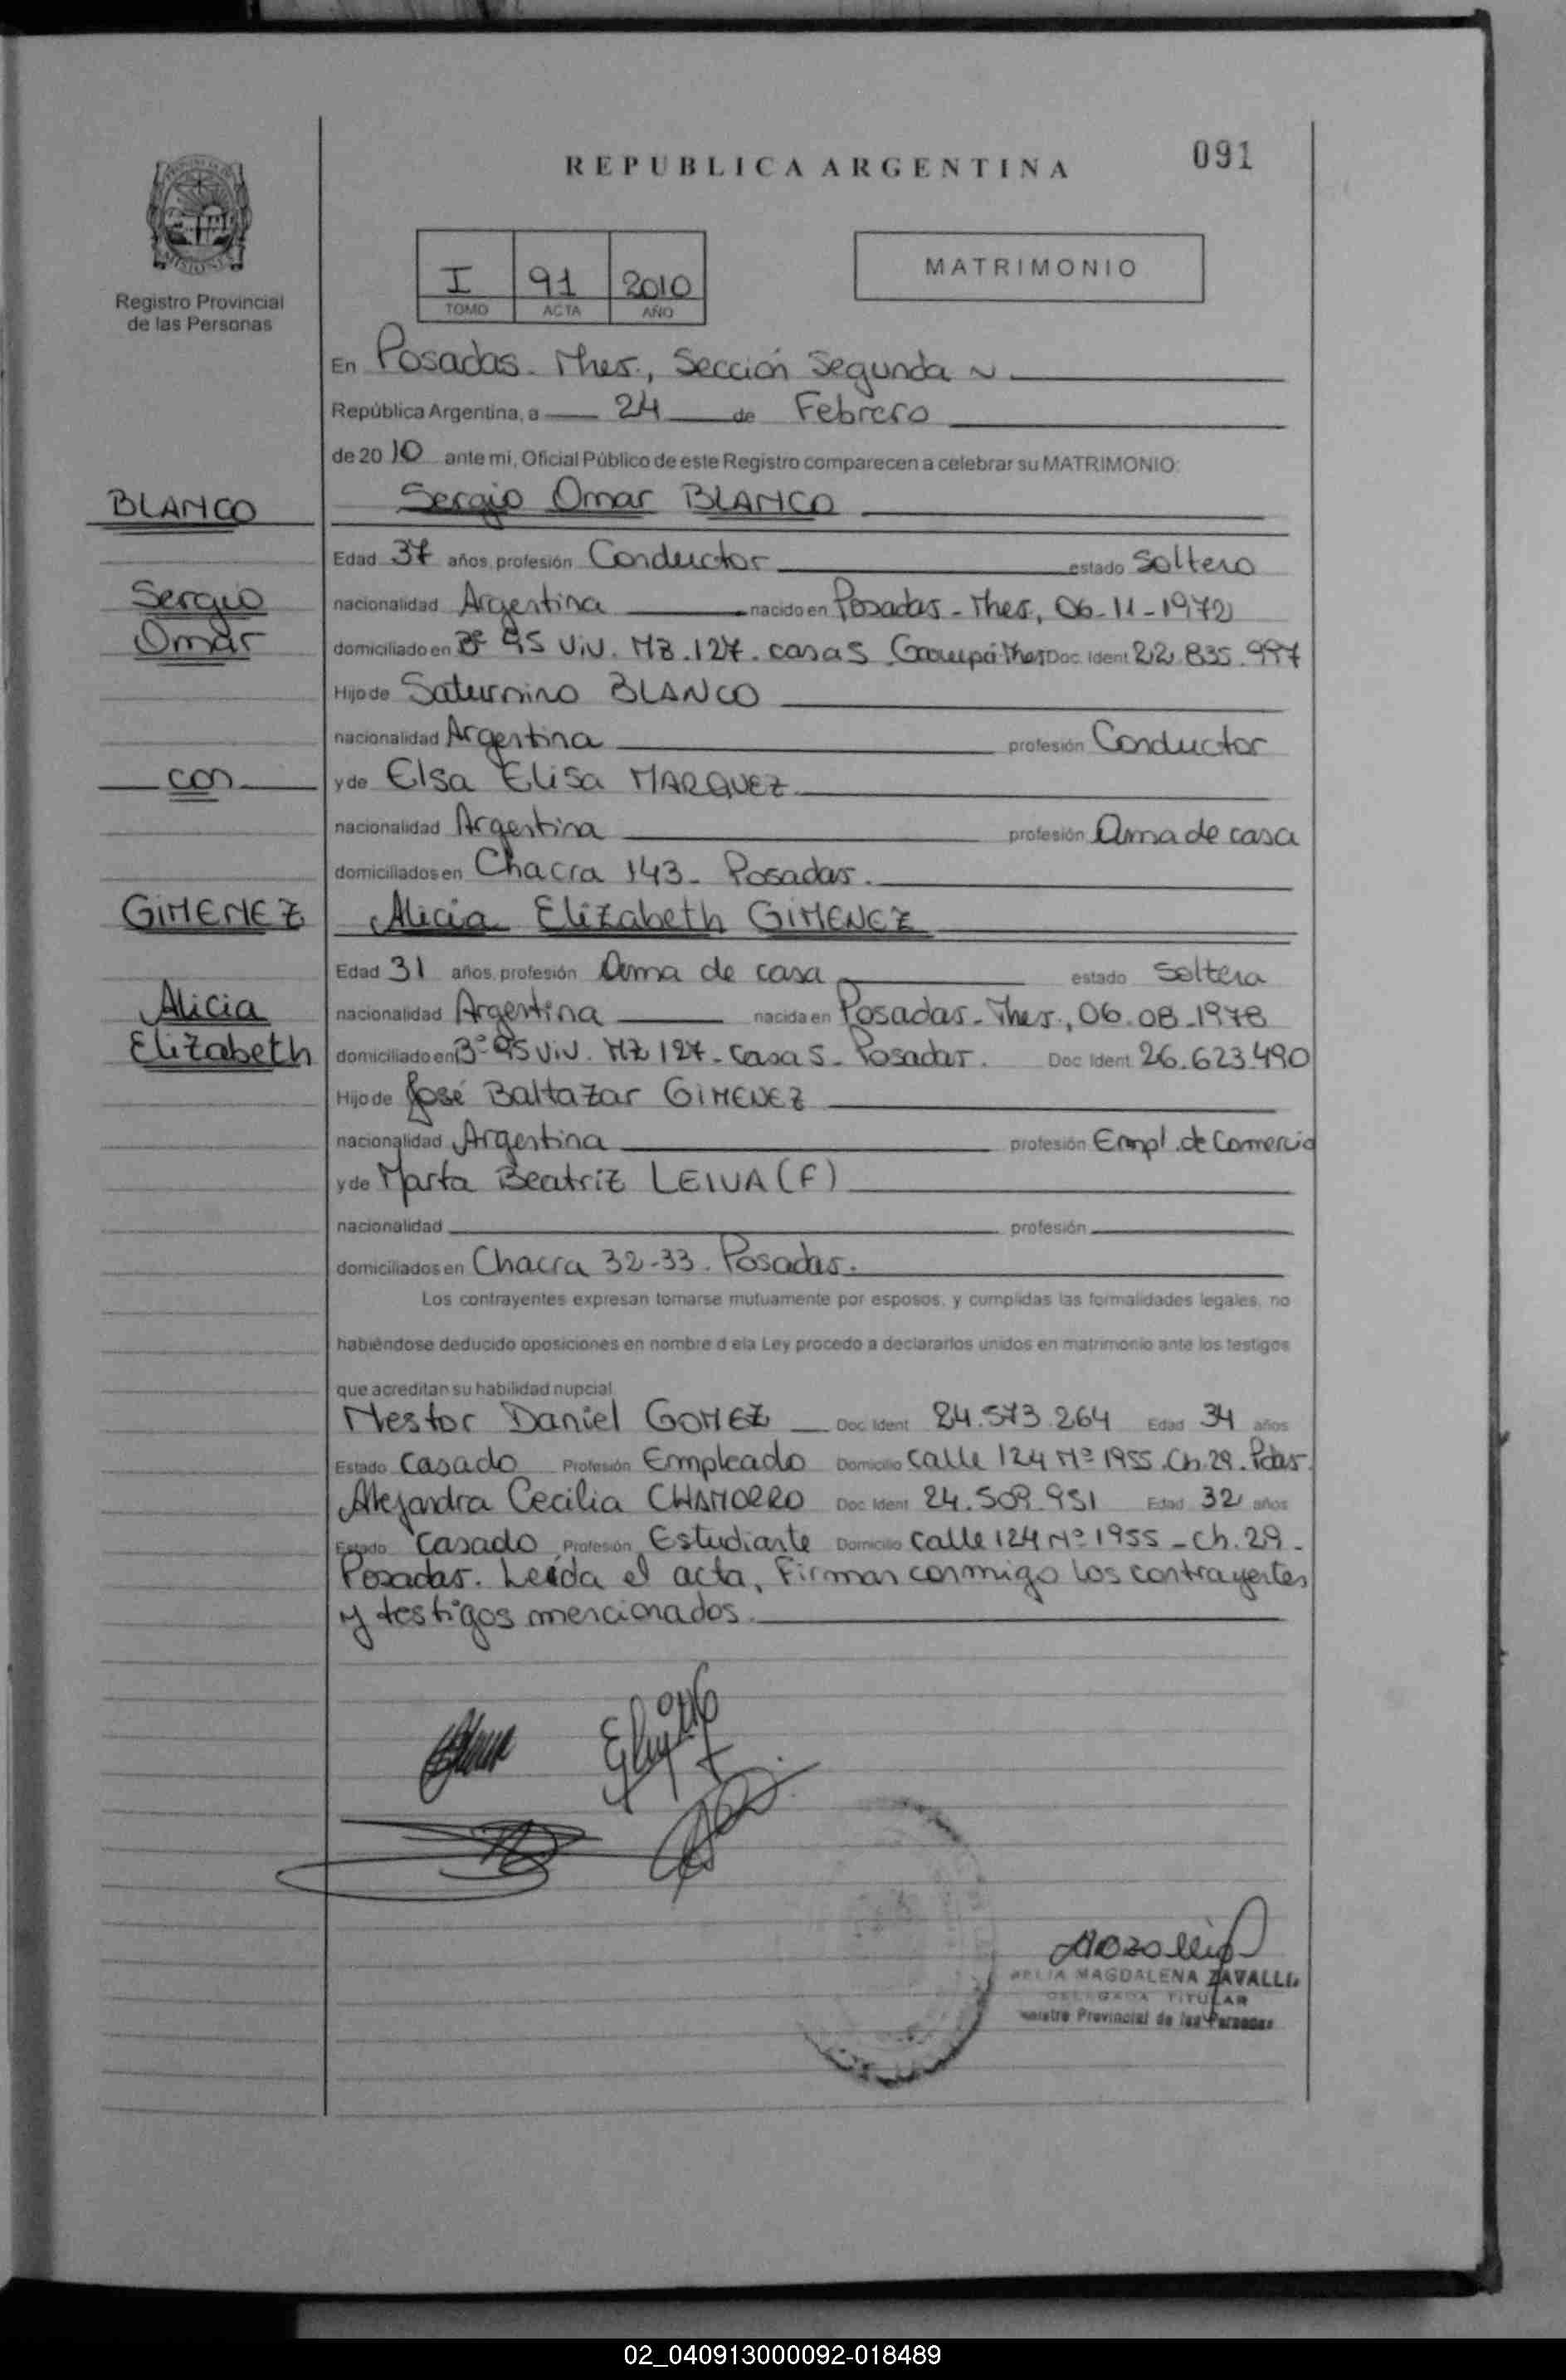 091
REPUBLICA ARGENTINA
MISIONES
Registro Provincial
de las Personas
I 91 2010
TOMO ACTA AÑO
MATRIMONIO
En Posadas - Mnes., Sección Segunda
República Argentina, a 24 de Febrero
de 20 10 ante mi, Oficial Público de este Registro comparecen a celebrar su MATRIMONIO:
BLANCO Sergio Omar BLANCO
Edad 37 años, profesión Conductor estado Soltero
Sergio nacionalidad Argentina nacido en Posadas - Mnes, 06-11-1972
Omar domiciliado en Bº 95 Viv. MZ. 127. casa 5 Doc. Ident 22.835.997
Hijo de Saturnino BLANCO
nacionalidad Argentina profesión Conductor
con y de Elsa Elisa MARQUEZ
nacionalidad Argentina profesión Ama de casa
domiciliados en Chacra 143 - Posadas.
GIMENEZ Alicia Elizabeth GIMENEZ
Edad 31 años, profesión Ama de casa estado Soltera
Alicia nacionalidad Argentina nacida en Posadas - Mnes., 06-08-1978
Elizabeth domiciliado en Bº 95 Viv. MZ 127 - casa 5 - Posadas. Doc Ident 26.623.490
Hijo de José Baltazar GIMENEZ
nacionalidad Argentina profesión Empl. de Comercio
y de Marta Beatriz LEIVA (F)
nacionalidad profesión
domiciliados en Chacra 32-33. Posadas.
Los contrayentes expresan tomarse mutuamente por esposos, y cumplidas las formalidades legales, no
habiéndose deducido oposiciones en nombre d ela Ley procedo a declararlos unidos en matrimonio ante los testigos
que acreditan su habilidad nupcial
Nestor Daniel GOMEZ Doc Ident 24.573.264 Edad 34 años
Estado Casado Profesión Empleado Domicilio calle 124 Nº 1955. Ch. 29. Pdas.
Alejandra Cecilia CHAMORRO Doc Ident 24.509.951 Edad 32 años
Estado Casado Profesión Estudiante Domicilio calle 124 Nº 1955 - Ch. 29 -
Posadas. Leída el acta, Firman conmigo los contrayentes
y testigos mencionados.
MAGDALENA ZAVALLI
DELEGADA TITULAR
Provincial de las Personas
02_040913000092-018489